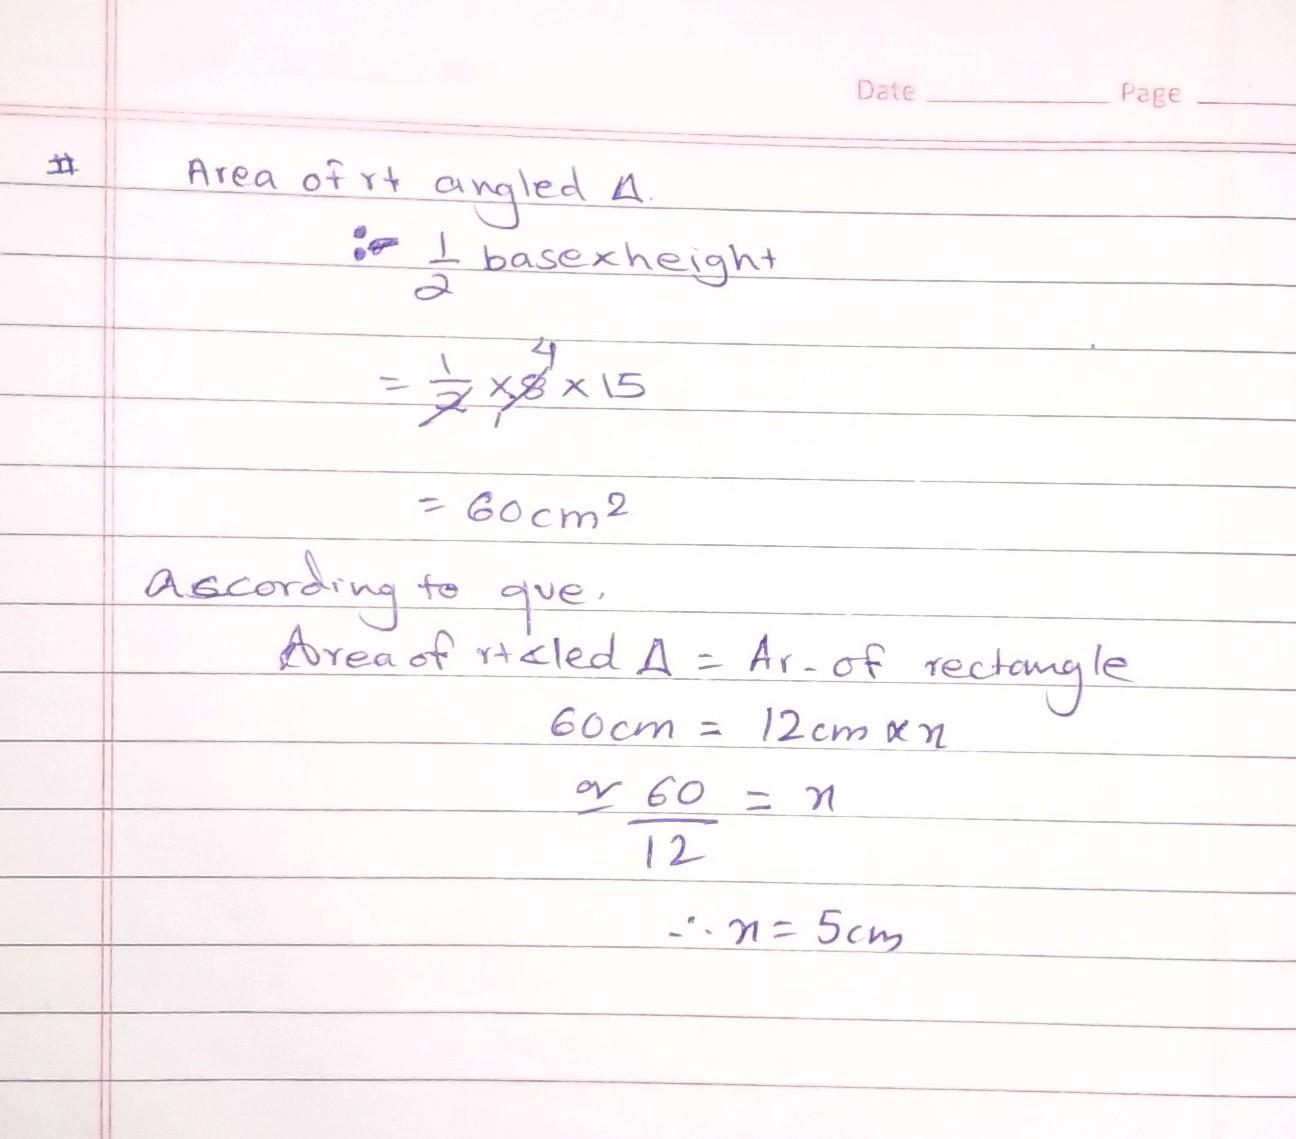 Date Page
# Area of rt angled Δ.
:- 1/2 base×height
= 1/2 × 8 4 1 × 15
= 60cm²
according to que.
Area of rt∠led Δ = Ar- of rectangle
60cm = 12cm × x
or 60/12 = x
∴ x = 5cm